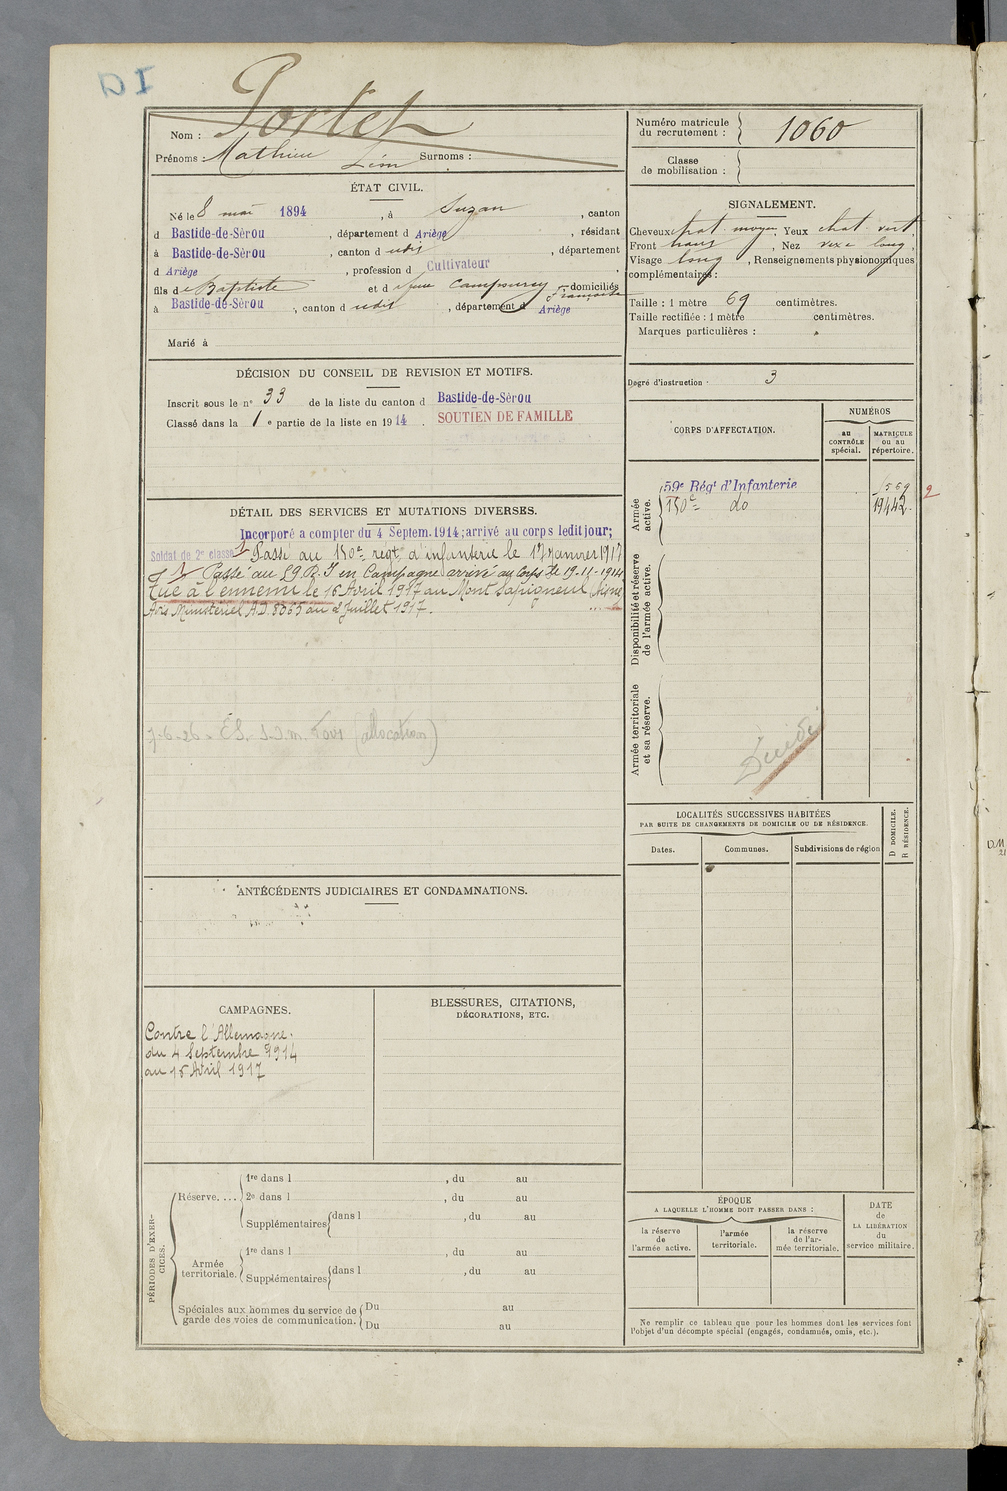 DI
Nom : Portet
Prénoms : Mathieu Léon Surnoms :
Numéro matricule du recrutement : 1060
Classe de mobilisation :
ÉTAT CIVIL.
Né le 8 mai 1894, à Suzan, canton
d Bastide-de-Sèrou, département d Ariège, résidant
à Bastide-de-Sèrou, canton d udit, département
d Ariège, profession d Cultivateur
fils de Baptiste et d domiciliés
Françoise
à Bastide-de-Sèrou, canton d udit, département d Ariège
Marié à
SIGNALEMENT.
Cheveux chat moyen, Yeux chat vert,
Front , Nez long,
Visage long, Renseignements physionomiques
complémentaires :
Taille : 1 mètre 69 centimètres.
Taille rectifiée : 1 mètre centimètres.
Marques particulières :
Degré d'instruction : 3
DÉCISION DU CONSEIL DE REVISION ET MOTIFS.
Inscrit sous le n° 33 de la liste du canton d Bastide-de-Sèrou
Classé dans la 1 e partie de la liste en 1914. SOUTIEN DE FAMILLE
CORPS D'AFFECTATION.
NUMÉROS
AU CONTRÔLE spécial.
MATRICULE OU AU répertoire.
Armée active.
59e Régt d'Infanterie
150e do 19442
2
Disponibilité et réserve de l'armée active.
Armée territoriale et sa réserve.
DÉTAIL DES SERVICES ET MUTATIONS DIVERSES.
Incorporé a compter du 4 Septem. 1914; arrivé au corps ledit jour;
Soldat de 2e classe Passé au 150e régt d'infanterie le 17 Janvier 1917
Passé au 59 R.I en Campagne arrivé au Corps le 19-11-1914
Tué à l'ennemi le 16 Avril 1917 au Mont Sapigneul
Avis Ministériel A.D. 8365 du 2 Juillet 1917.
7-6-26 (allocation)
LOCALITÉS SUCCESSIVES HABITÉES
PAR SUITE DE CHANGEMENTS DE DOMICILE OU DE RÉSIDENCE.
Dates.
Communes.
Subdivisions de région
D DOMICILE.
R RÉSIDENCE.
ANTÉCÉDENTS JUDICIAIRES ET CONDAMNATIONS.
CAMPAGNES.
Contre l'Allemagne.
du 4 Septembre 1914
au 15 Avril 1917
BLESSURES, CITATIONS,
DÉCORATIONS, ETC.
PÉRIODES D'EXERCICES.
Réserve....
1re dans l , du au
2e dans l , du au
Supplémentaires dans l , du au
Armée territoriale.
1re dans l , du au
Supplémentaires dans l , du au
Spéciales aux hommes du service de garde des voies de communication.
Du au
Du au
ÉPOQUE
A LAQUELLE L'HOMME DOIT PASSER DANS :
la réserve de l'armée active.
l'armée territoriale.
la réserve de l'armée territoriale.
DATE de LA LIBÉRATION du service militaire.
Ne remplir ce tableau que pour les hommes dont les services font
l'objet d'un décompte spécial (engagés, condamnés, omis, etc.).